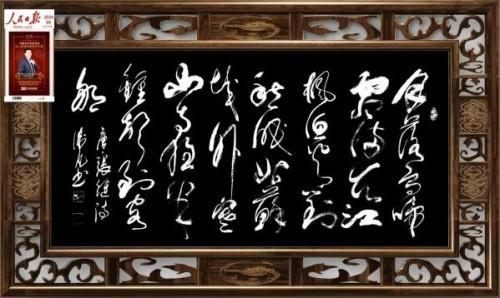 人民日报
月落烏啼
霜满天江
枫渔火对
愁眠姑蘇
城外寒
山寺夜半
鐘聲到客
船
唐張继诗